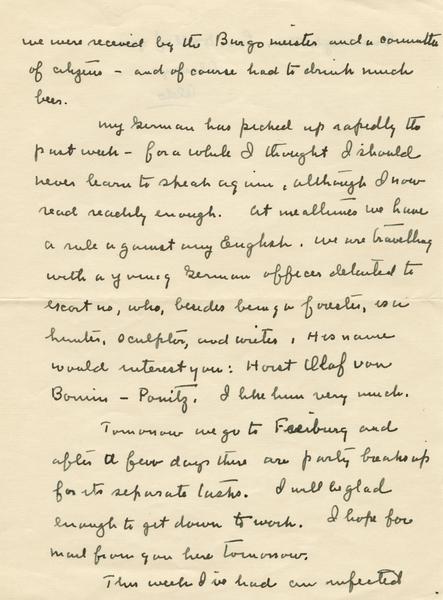 we were received by the Burgomeister and a committee
of citizens - and of course had to drink much
beer.
My German has picked up rapidly the
past week - for a while I thought I should
never learn to speak again, although I now
read readily enough. At mealtimes we have
a rule against any English. We are travelling
with a young German officer detailed to
escort us, who, besides being a forester, is a
hunter, sculptor, and writer. His name
would interest you: Horst Olaf von
Bonin - Ponitz. I like him very much.
Tomorrow we go to Freiburg and
after a few days there our party breaks up
for its separate tasks. I will be glad
enough to get down to work. I hope for
mail from you here tomorrow.
This week I've had an infected